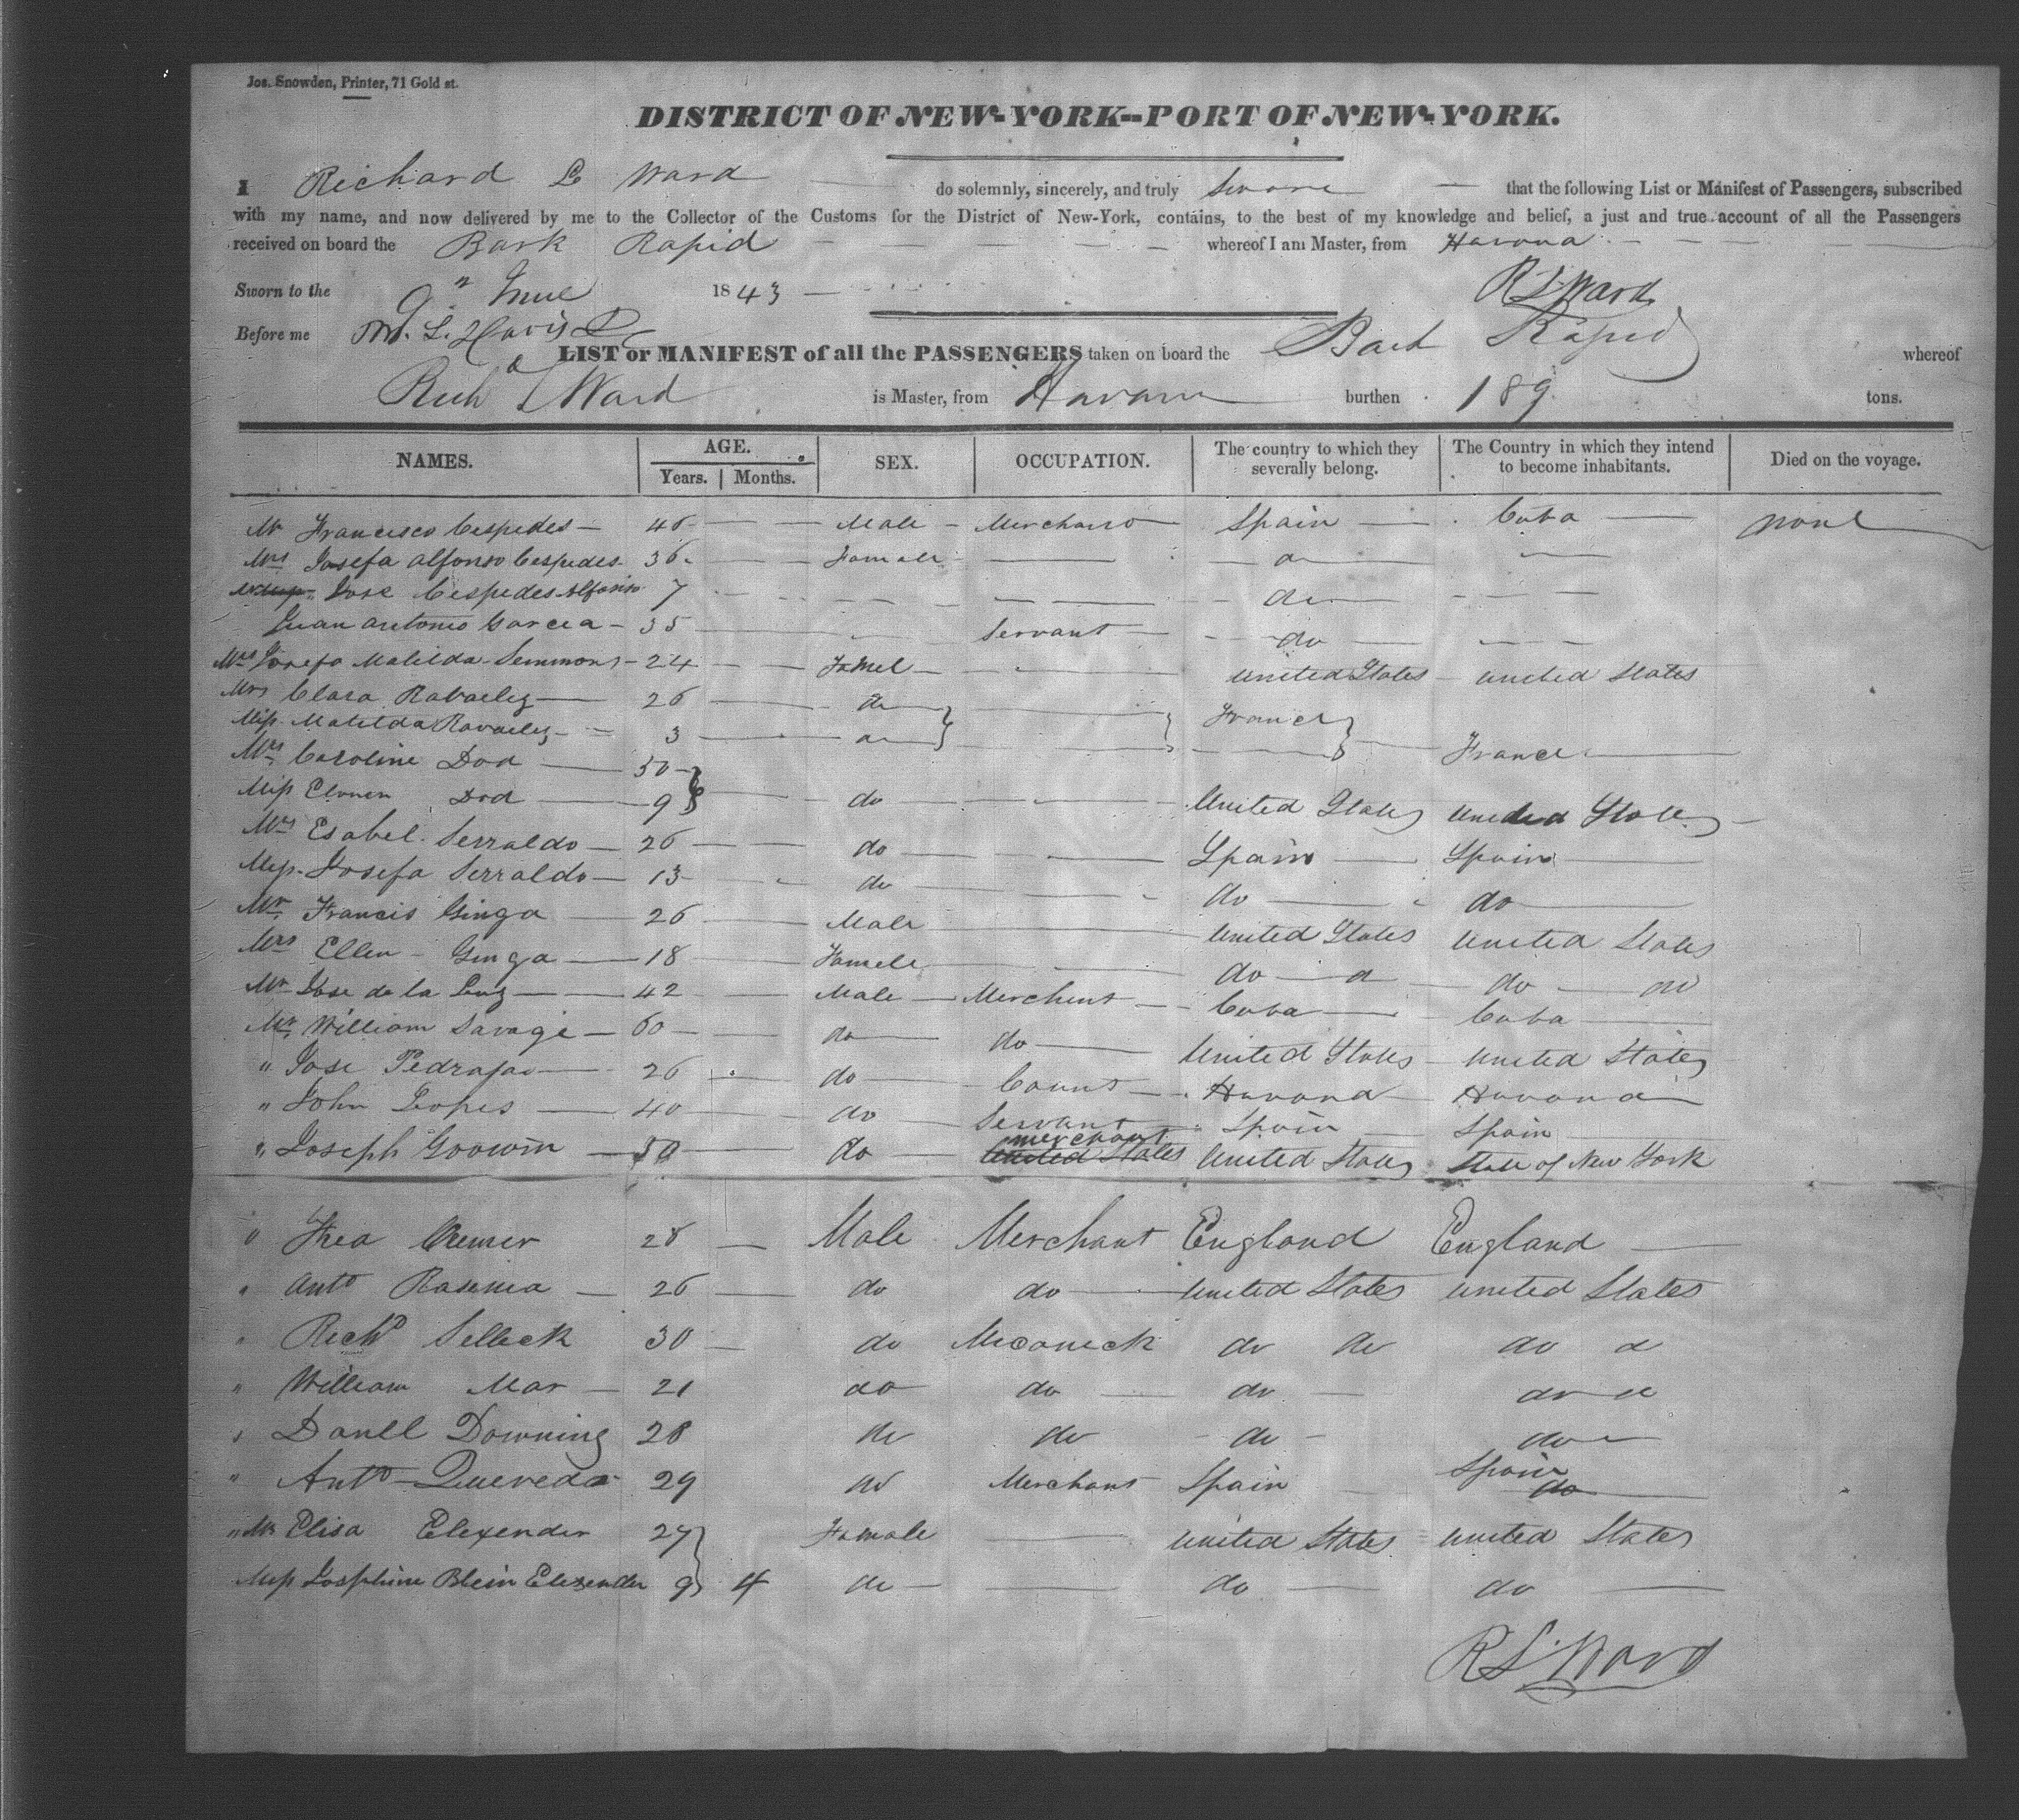 Jos. Snowden, Printer, 71 Gold st.
DISTRICT OF NEW-YORK--PORT OF NEW-YORK.
I Richard L Ward do solemnly, sincerely, and truly Swore that the following List or Manifest of Passengers, subscribed
with my name, and now delivered by me to the Collector of the Customs for the District of New-York, contains, to the best of my knowledge and belief, a just and true account of all the Passengers
received on board the Bark Rapid whereof I am Master, from Havana
Sworn to the 9" June 1843 R L Ward
Before me M. L. Davis
LIST or MANIFEST of all the PASSENGERS taken on board the Bark Rapid whereof
Rich L Ward is Master, from Havana burthen 189 tons.
NAMES. AGE. Years. Months. SEX. OCCUPATION. The country to which they severally belong. The Country in which they intend to become inhabitants. Died on the voyage.
Mr Francisco Cespedes 46 Male Merchant Spain Cuba none
Mrs Josefa Alfonso Cespedes 36 Female do
Jose Cespedes Alfonso 7 do
Juan Antonio Garcia 35 Servant do
Mrs Josefa Matilda Semmons 24 Femel United States United States
Mrs Clara Ravaelez 26 do France
Miss Matilda Ravaelez 3 do France
Mrs Caroline Dod 50
Miss Elonen Dod 9 do United States United States
Mrs Esabel Serraldo 26 do Spain Spain
Miss Josefa Serraldo 13 do do do
Mr Francis Ginga 26 Male United States United States
Mrs Ellen Ginga 18 Femele do d do do
Mr Jose de la Luz 42 Male Merchent Cuba Cuba
Mr William Savage 60 do do United States United States
" Jose Pedrajao 26 do Count Havana Havana
" John Lopes 40 do Servant Spain Spain
" Joseph Goowin 50 do merchant United States United States State of New York
" Cremer 28 Male Merchant England England
" Anto Rasenia 26 do do United States United States
" Richd Selleck 30 do Mecaneck do do do d
" William Mar 21 do do do do d
" Danll Downing 28 do do do do
" Anto Quevedo 29 do Merchant Spain Spain do
" Mrs Elisa Elexender 27 Female United States United States
Miss Josephine Blein Elexender 9 4 do do do
R L Ward